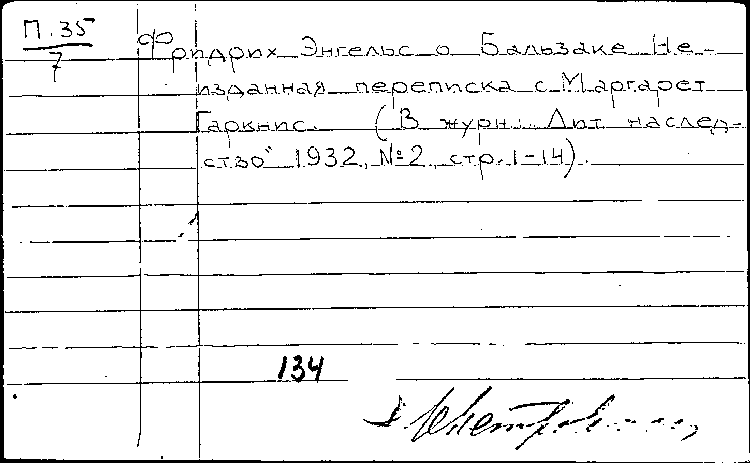 П. 35
7
Фридрих Энгельс о Бальзаке Не-
изданная переписка с Маргарет
Гаркнис. (В журн. Лит наслед-
ство" 1932, №2, стр. 1-14).
134